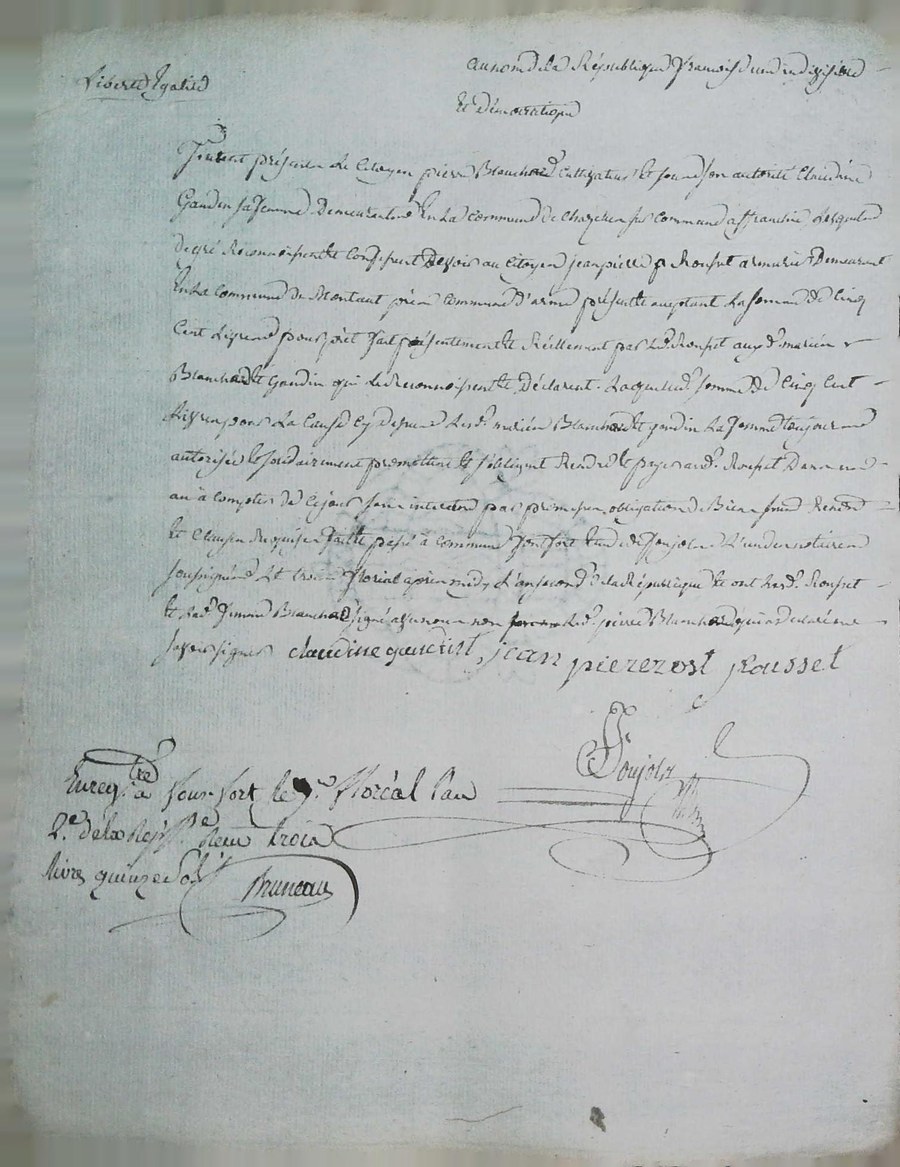 Liberté Égalité
au nom de la République françoise une indivisible
et démocratique
furent présens le Citoyen pierre Blanchard Cultivateur et sous son autorité Claudine
Gaudin sa femme Demeurants En la commune de commune affranchie Lesquels
de gré Reconnoissent et Confessent Devoir au Citoyen jean pierre Rousset armurier Demeurant
En la commune de Montaut près commune d'arme présent et acceptant La somme de Cinq
Cent Livres pour prêt fait présentement et Réellement par led. Rousset auxd. mariés
Blanchard et Gaudin qui le Reconnoissent et Déclarent. Laquelle somme de Cinq Cent
Livres pour La Cause Cy dessus Lesd. mariés Blanchard et gaudin La femme toujours
autorisée et solidairement promettent et s'obligent Rendre et payer aud. Rousset Dans un
an à Compter de Ce jour sans interest par obligation de Biens
et Clauses Requises fait et passé à commune
soussigné Le trois floréal après midy L'an second de la République et ont Led. Rousset
et lad. femme Blanchard signé non Led. pierre Blanchard qui a déclaré ne
savoir signer claudine jean piere rousset
Soujols
Enreg.tré à le floréal l'an
2.e de la Rép. Reçu trois
livres quinze sols Bruneau